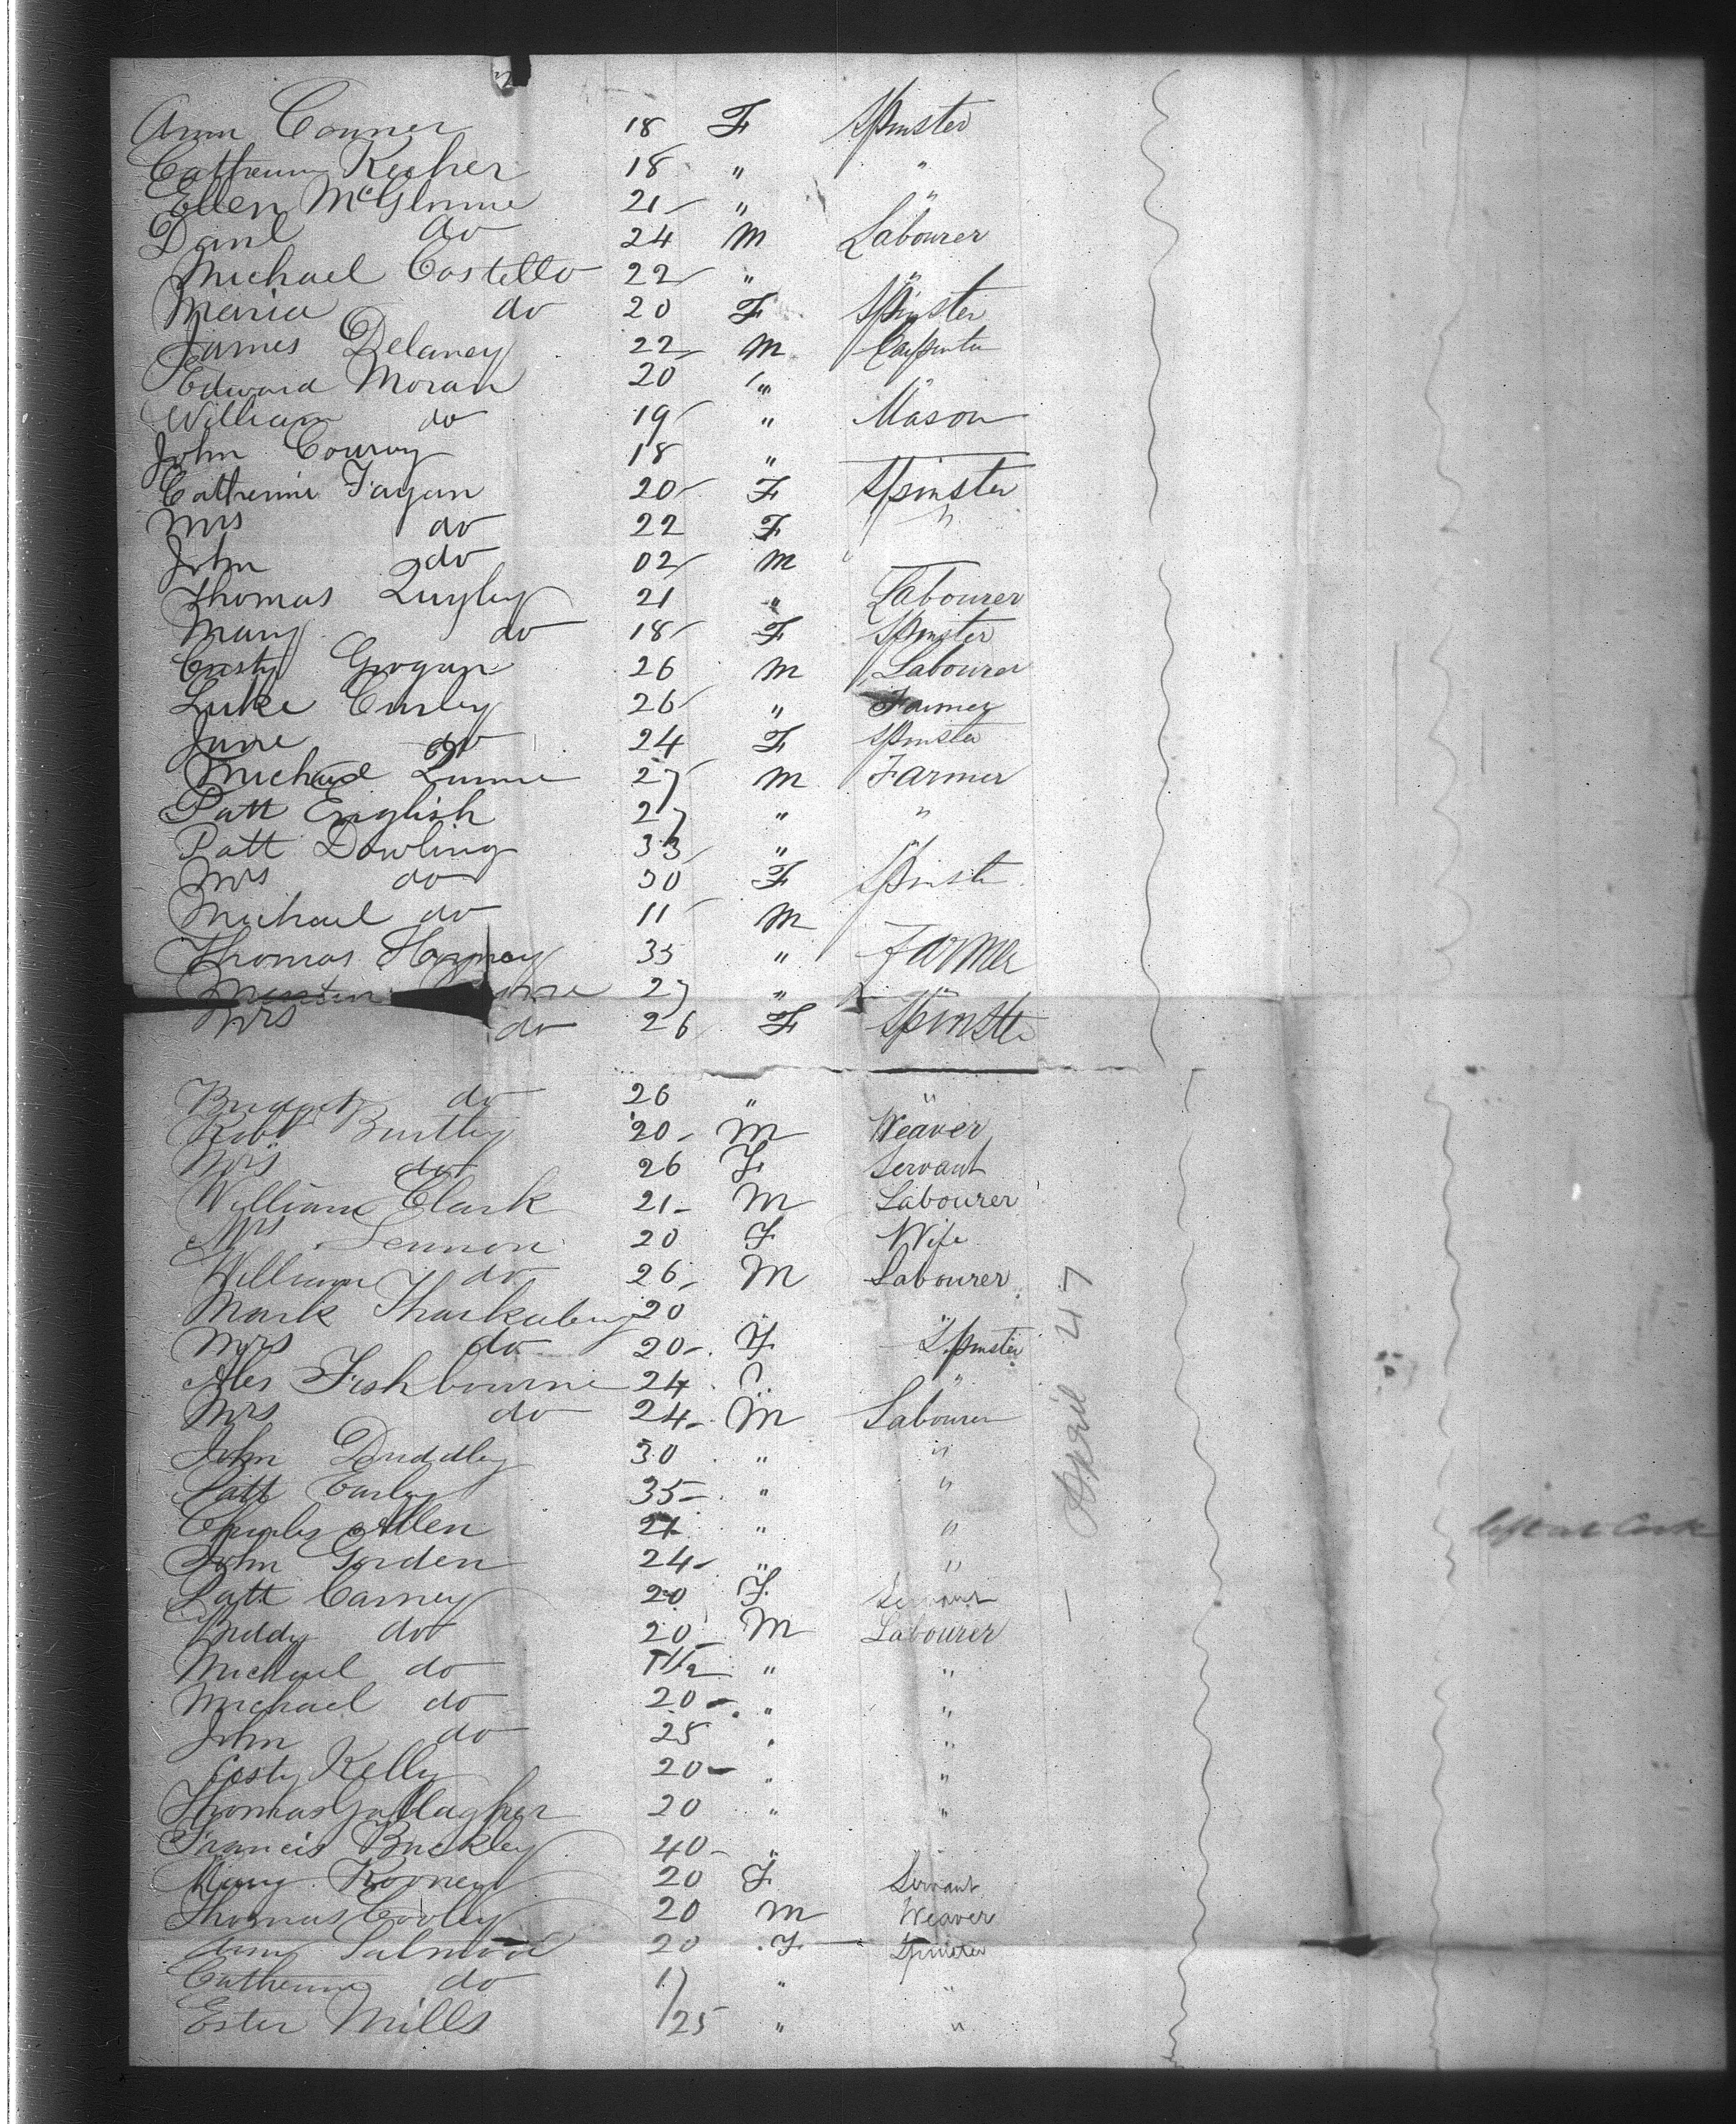 Ann Conner 18 F Spinster
Catherine Kecher 18 " "
Ellen McGlinne 21 " "
Danl do 24 M Labourer
Michael Costello 22 " "
Maria do 20 F Spinster
James Delaney 22 M Carpenter
Edward Moran 20 " "
William do 19 " Mason
John Conroy 18 "
Catherine Fagan 20 F Spinster
Mrs do 22 F "
John do 02 M
Thomas Quigley 21 " Labourer
Mary do 18 F Spinster
Cristy Grogan 26 M Labourer
Luke Curley 26 " Farmer
Jane do 24 F Spinster
Michael Quinne 27 M Farmer
Patt English 27 " "
Patt Dowling 33 " "
Mrs do 30 F Spinste
Michael do 11 M
Thomas 35 " Farmer
27 " "
Mrs do 26 F Spinster
Bridget do 26 " "
Robt Burtley 20 M Weaver
Mrs do 26 F Servant
William Clark 21 M Labourer
Mrs Lennon 20 F Wife
William do 26 M Labourer
Mark 20 " "
Mrs do 20 F Spinster
Alex Fishbourne 24 " "
Mrs do 24 M Labourer
John Duddley 30 " "
Patt Earley 35 " "
Charles Allen 21 " "
left at Cork
John Gorden 24 " "
Patt Carney 20 F Servant
Biddy do 20 M Labourer
Michael do 1 1/2 " "
Michael do 20 " "
John do 25 " "
Costy Kelly 20 " "
Thomas Gallagher 20 " "
Francis Buckley 40 "
Mary Rooney 20 F Servant
Thomas Cooley 20 M Weaver
Ann Salmon 20 F Spinster
Catherine do 17 " "
Ester Mills 25 " "
April 47